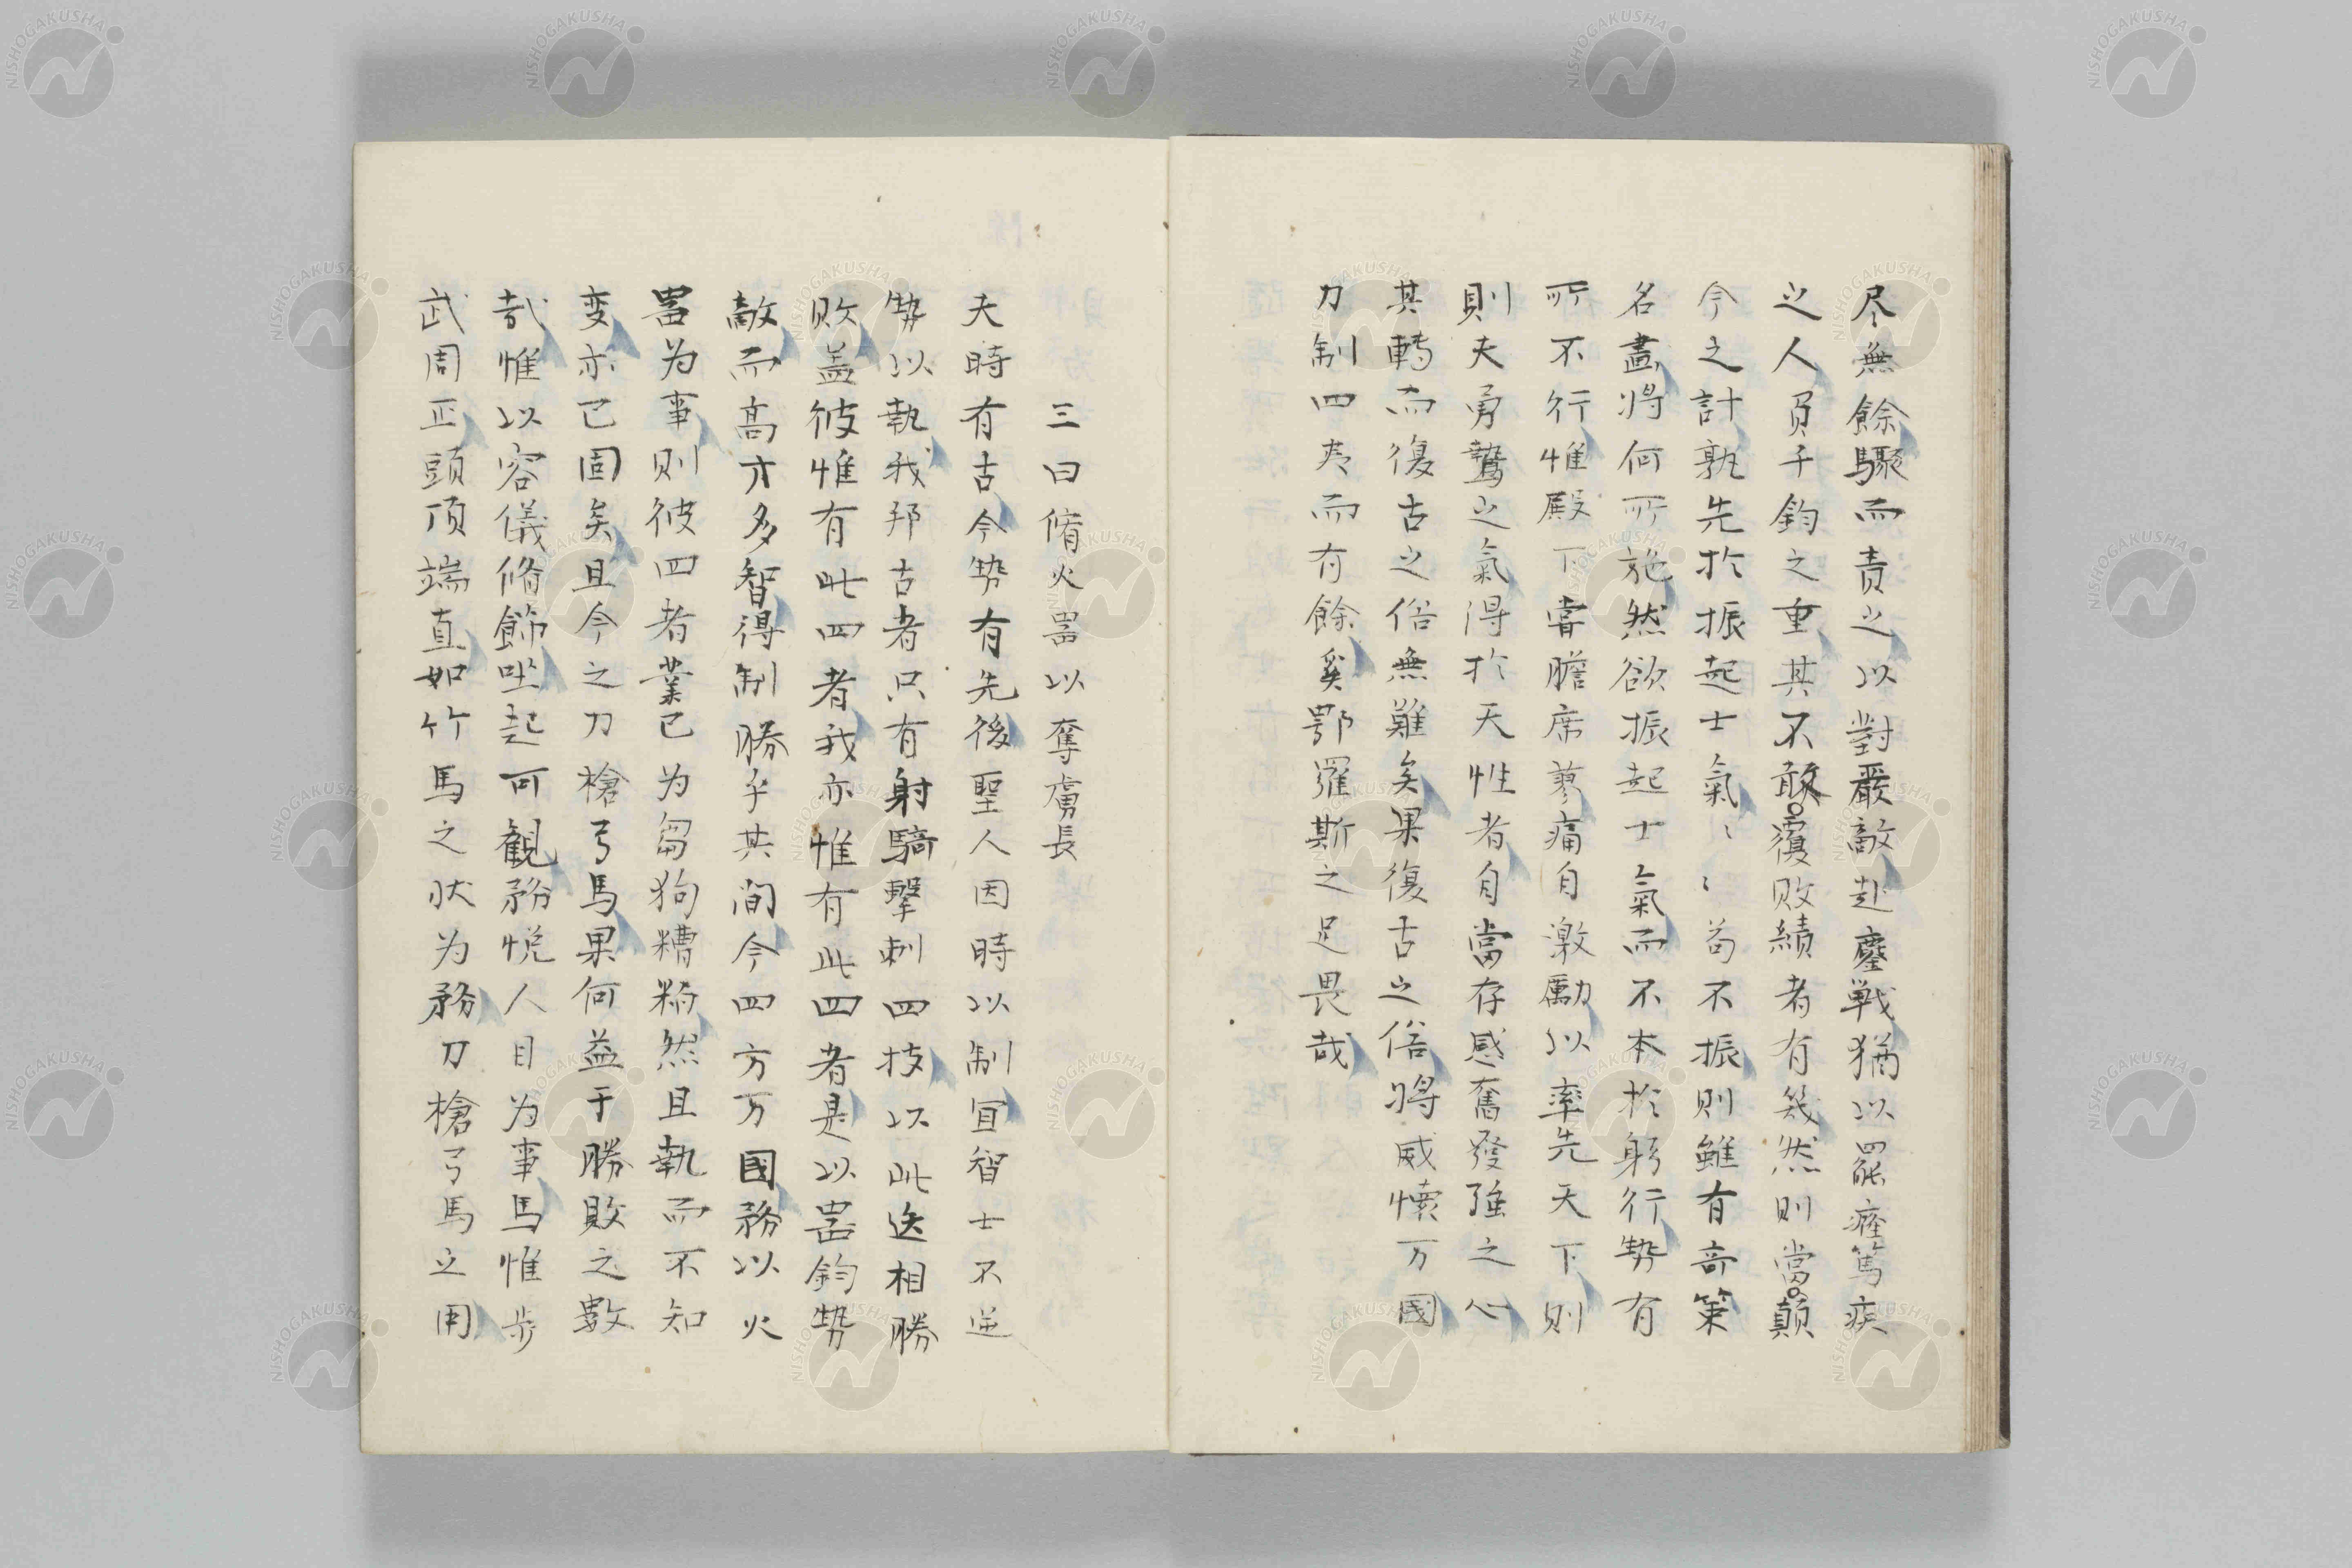 尽無餘驟而責之以對嚴敵赴鏖戦猶以罷癃篤疾
之人負千鈞之重其不敢覆敗績者有幾然則當顛
今之計孰先於振起士氣〻〻苟不振則雖有奇策
名畫将何所施然欲振起士氣而不本於躬行勢有
所不行惟殿下甞膽席蓼痛自激勵以率先天下則
則夫勇鷙之氣得於天性者自當存感奮發強之心
其轉而復古之俗無難矣果復古之俗将威懐万國
力制四夷而有餘奚鄂羅斯之足畏哉
三曰脩火噐以奪虜長
夫時有古今勢有先後聖人因時以制宜智士不逆
勢以執我邦古者只有射騎擊刺四技以此迭相勝
敗盖彼惟有此四者我亦惟有此四者是以噐鈞勢
敵而高才多智得制勝乎其间今四方万國務以火
噐为事則彼四者業已为芻狗糟粕然且執而不知
変亦已固矣且今之刀槍弓馬果何益于勝敗之數
哉惟以容儀脩飾坐起可観務悦人目为事馬惟步
武周正頭頂端直如竹馬之状为務刀槍弓馬之用
NISHOGAKUSHA